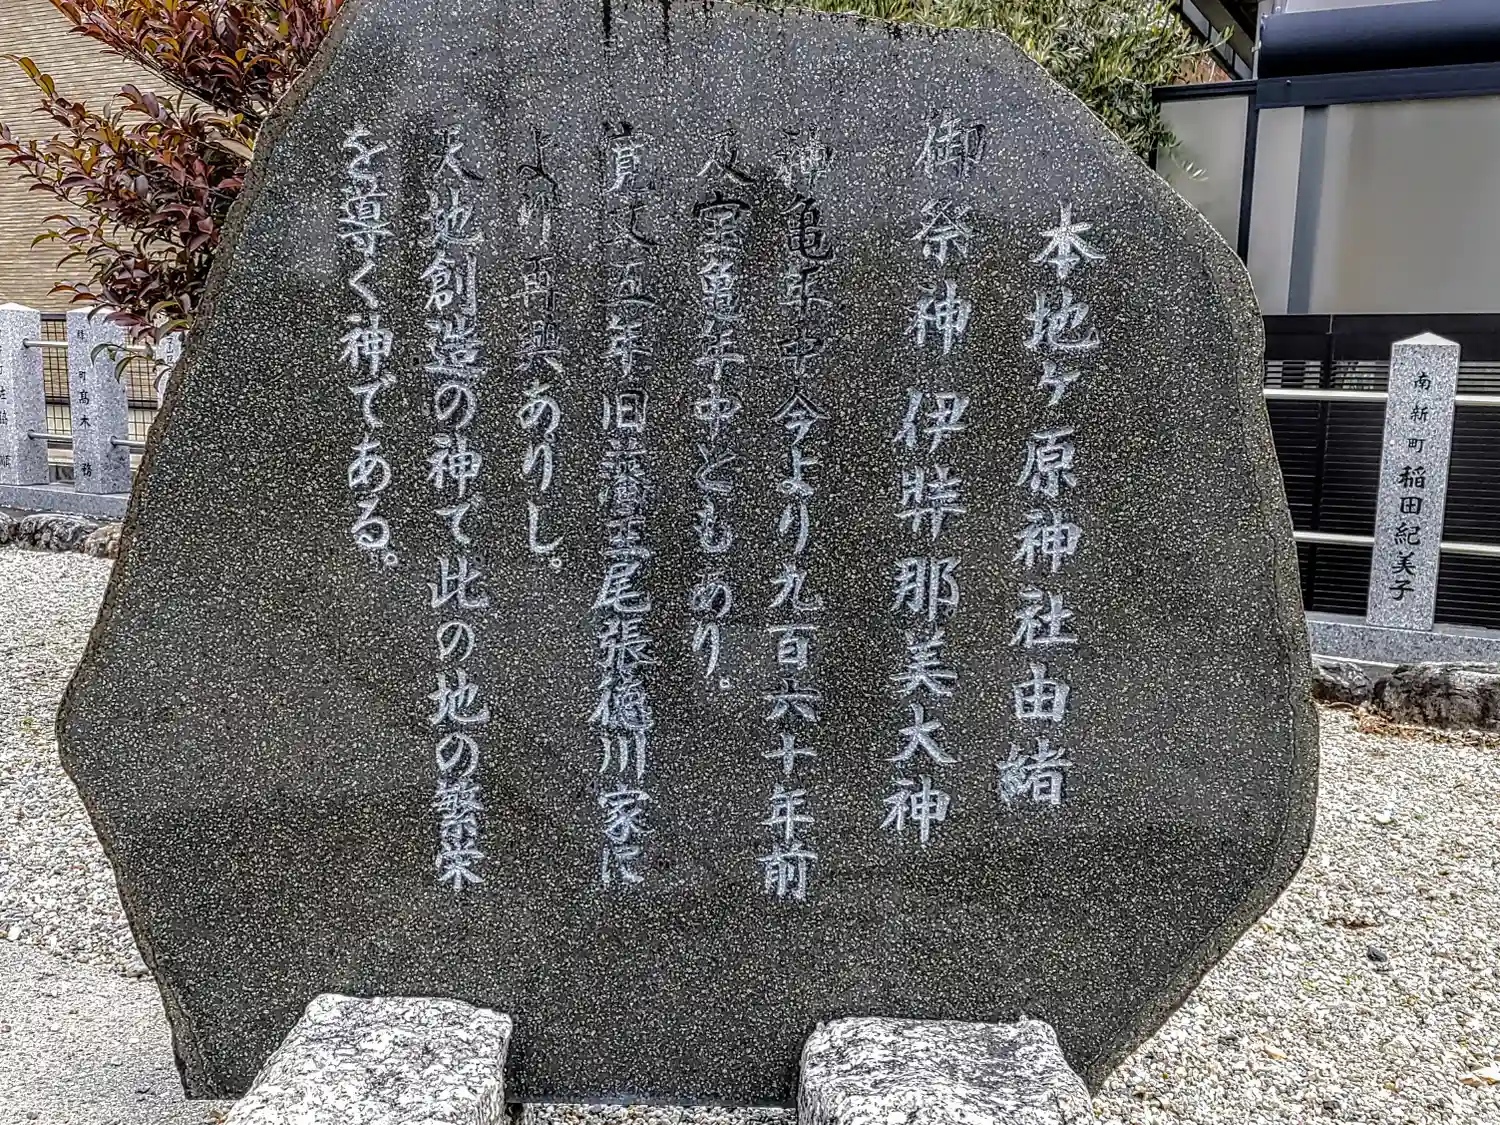 本地ヶ原神社由緒
御祭神 伊弉那美大神
神亀年中今より九百六十年前
又宝亀年中ともあり。
寛文五年旧藩主尾張徳川家に
より再興ありし。
天地創造の神で此の地の繁栄
を尊く神である。
南新町 稲田紀美子
町 髙木